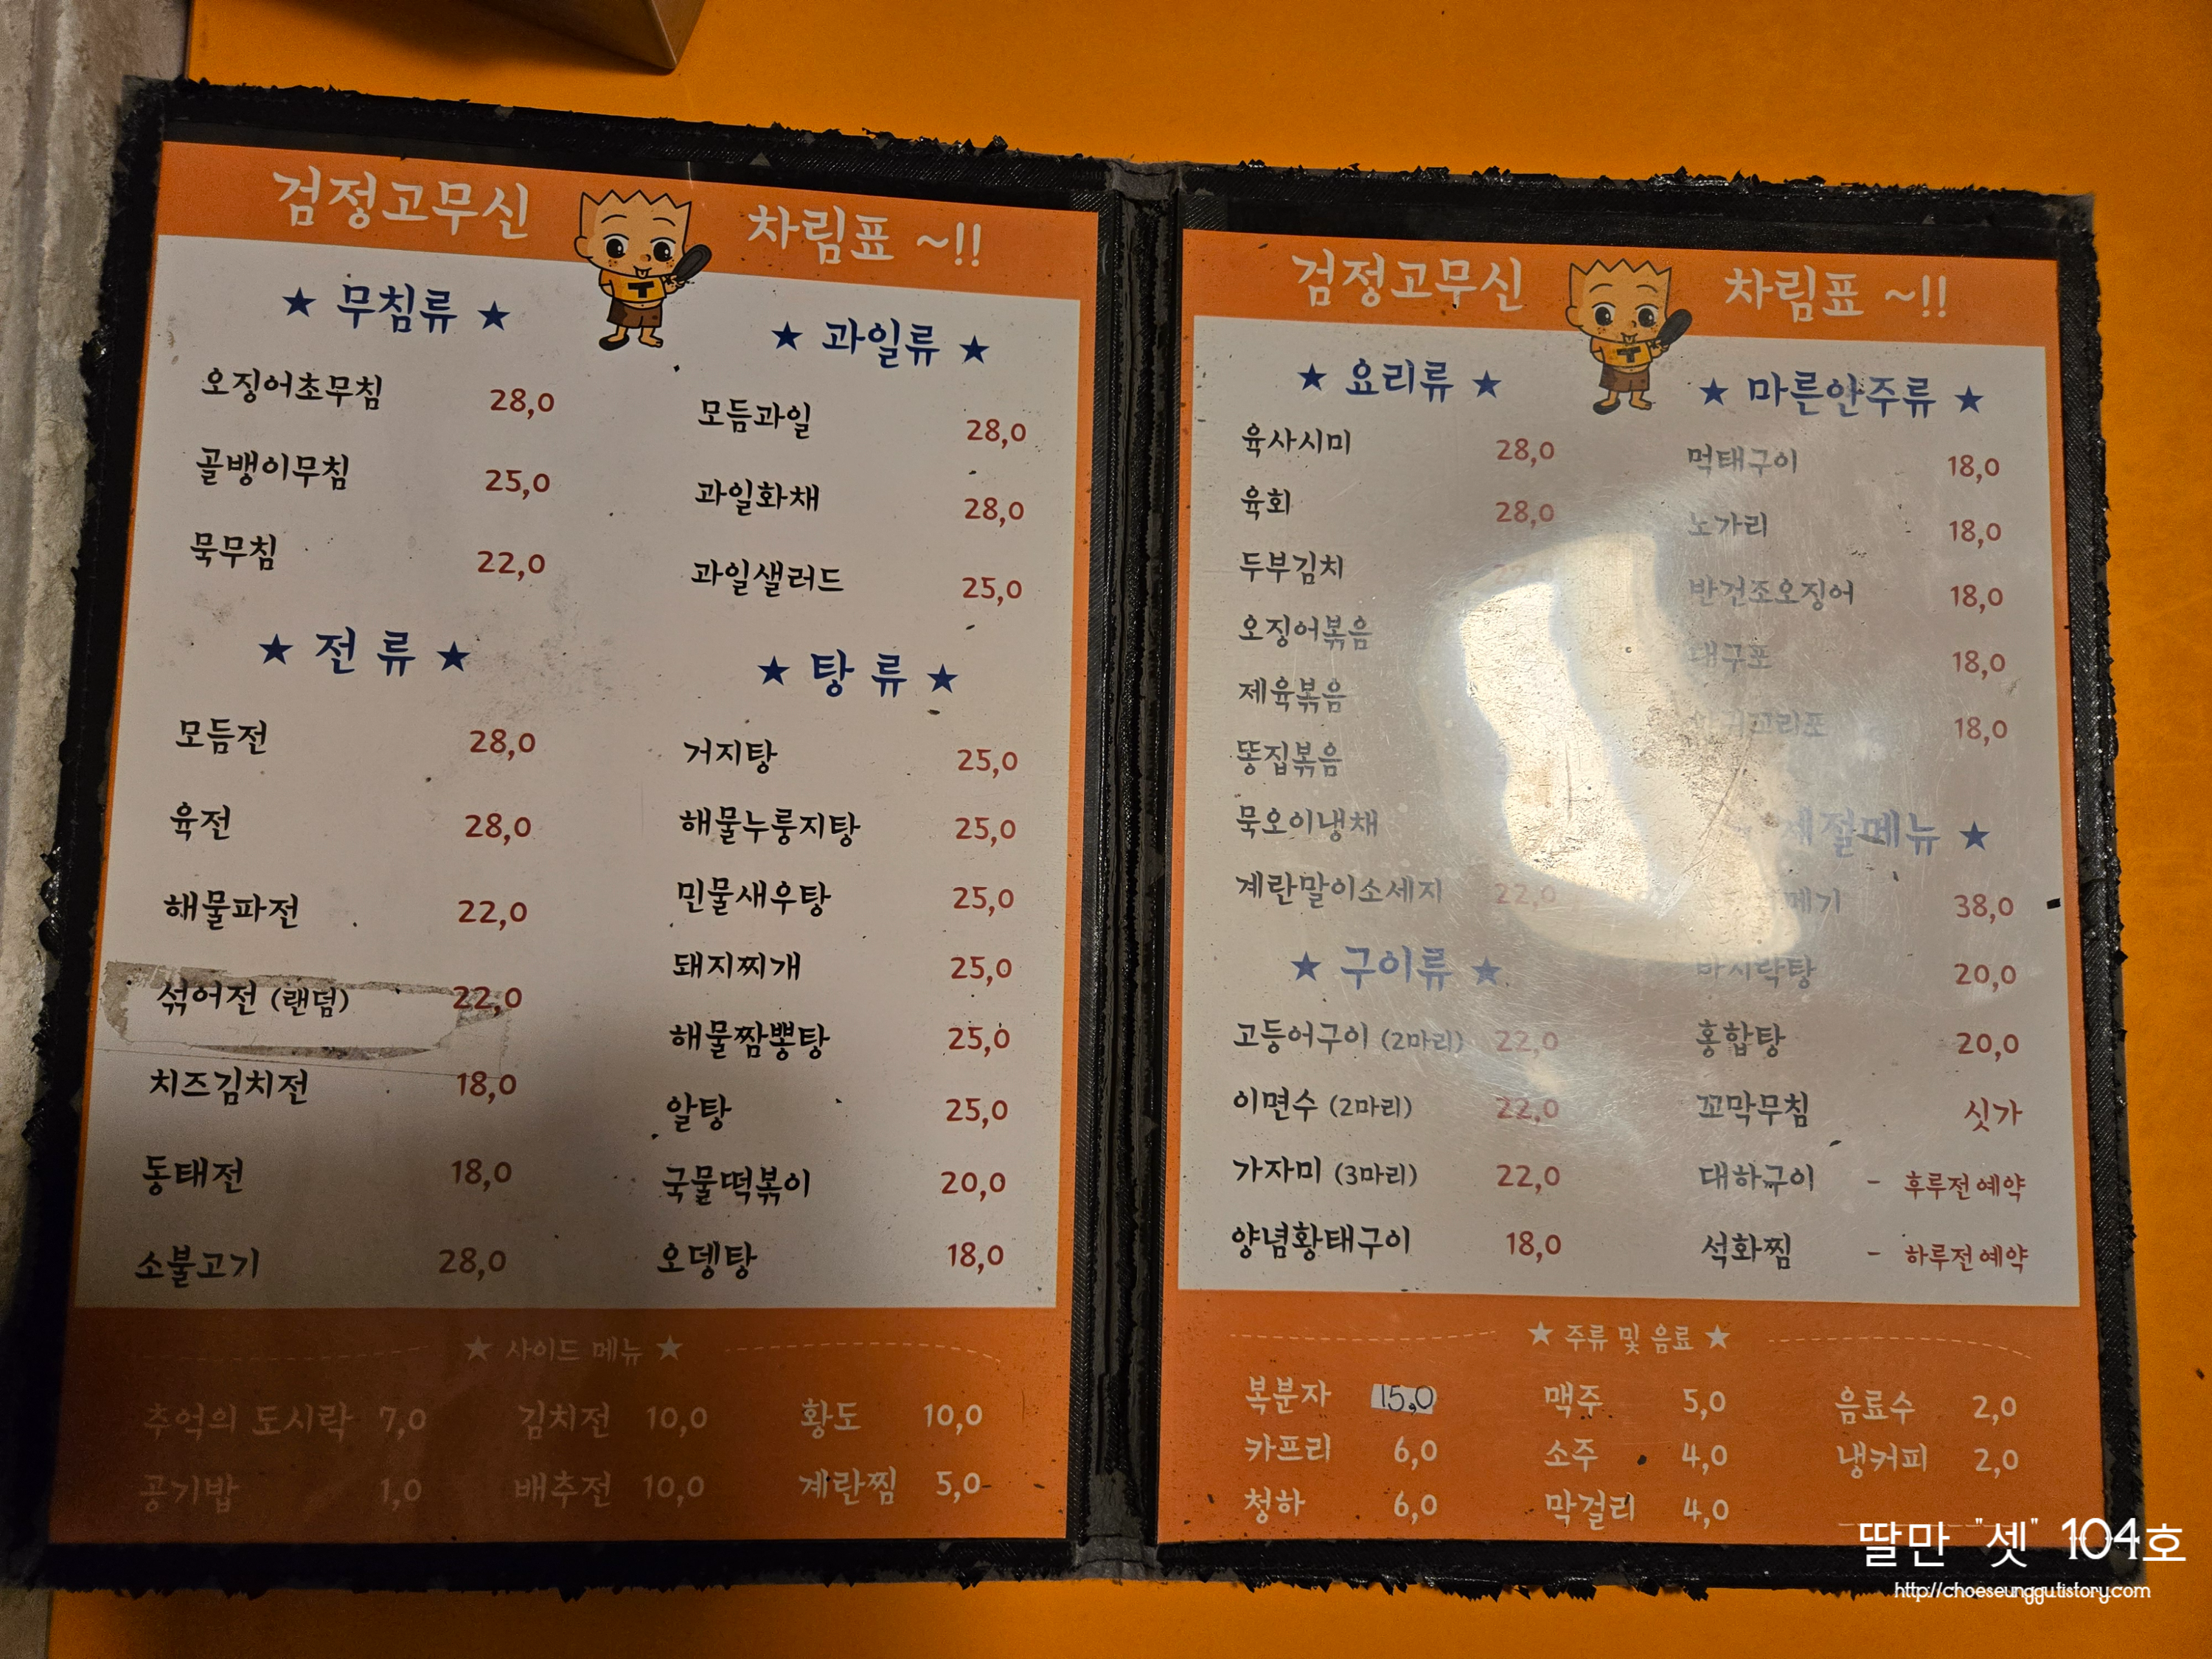 검정고무신 차림표 ~!!
★ 무침류 ★
오징어초무침 28,0
골뱅이무침 25,0
묵무침 22,0
★ 전 류 ★
모듬전 28,0
육전 28,0
해물파전 22,0
섞어전 (랜덤) 22,0
치즈김치전 18,0
동태전 18,0
소불고기 28,0
★ 과일류 ★
모듬과일 28,0
과일화채 28,0
과일샐러드 25,0
★ 탕 류 ★
거지탕 25,0
해물누룽지탕 25,0
민물새우탕 25,0
돼지찌개 25,0
해물짬뽕탕 25,0
알탕 25,0
국물떡볶이 20,0
오뎅탕 18,0
★ 사이드 메뉴 ★
추억의 도시락 7,0 김치전 10,0 황도 10,0
공기밥 1,0 배추전 10,0 계란찜 5,0
검정고무신 차림표 ~!!
★ 요리류 ★
육사시미 28,0
육회 28,0
두부김치
오징어볶음
제육볶음
똥집볶음
묵오이냉채
계란말이소세지 22,0
★ 구이류 ★
고등어구이 (2마리) 22,0
이면수 (2마리) 22,0
가자미 (3마리) 22,0
양념황태구이 18,0
★ 마른안주류 ★
먹태구이 18,0
노가리 18,0
반건조오징어 18,0
대구포 18,0
18,0
계절메뉴 ★
38,0
바지락탕 20,0
홍합탕 20,0
꼬막무침 싯가
대하구이 - 후루전예약
석화찜 - 하루전예약
★ 주류 및 음료 ★
복분자 15,0 맥주 5,0 음료수 2,0
카프리 6,0 소주 4,0 냉커피 2,0
청하 6,0 막걸리 4,0
딸만 "셋" 104호
http://choeseunggutistory.com